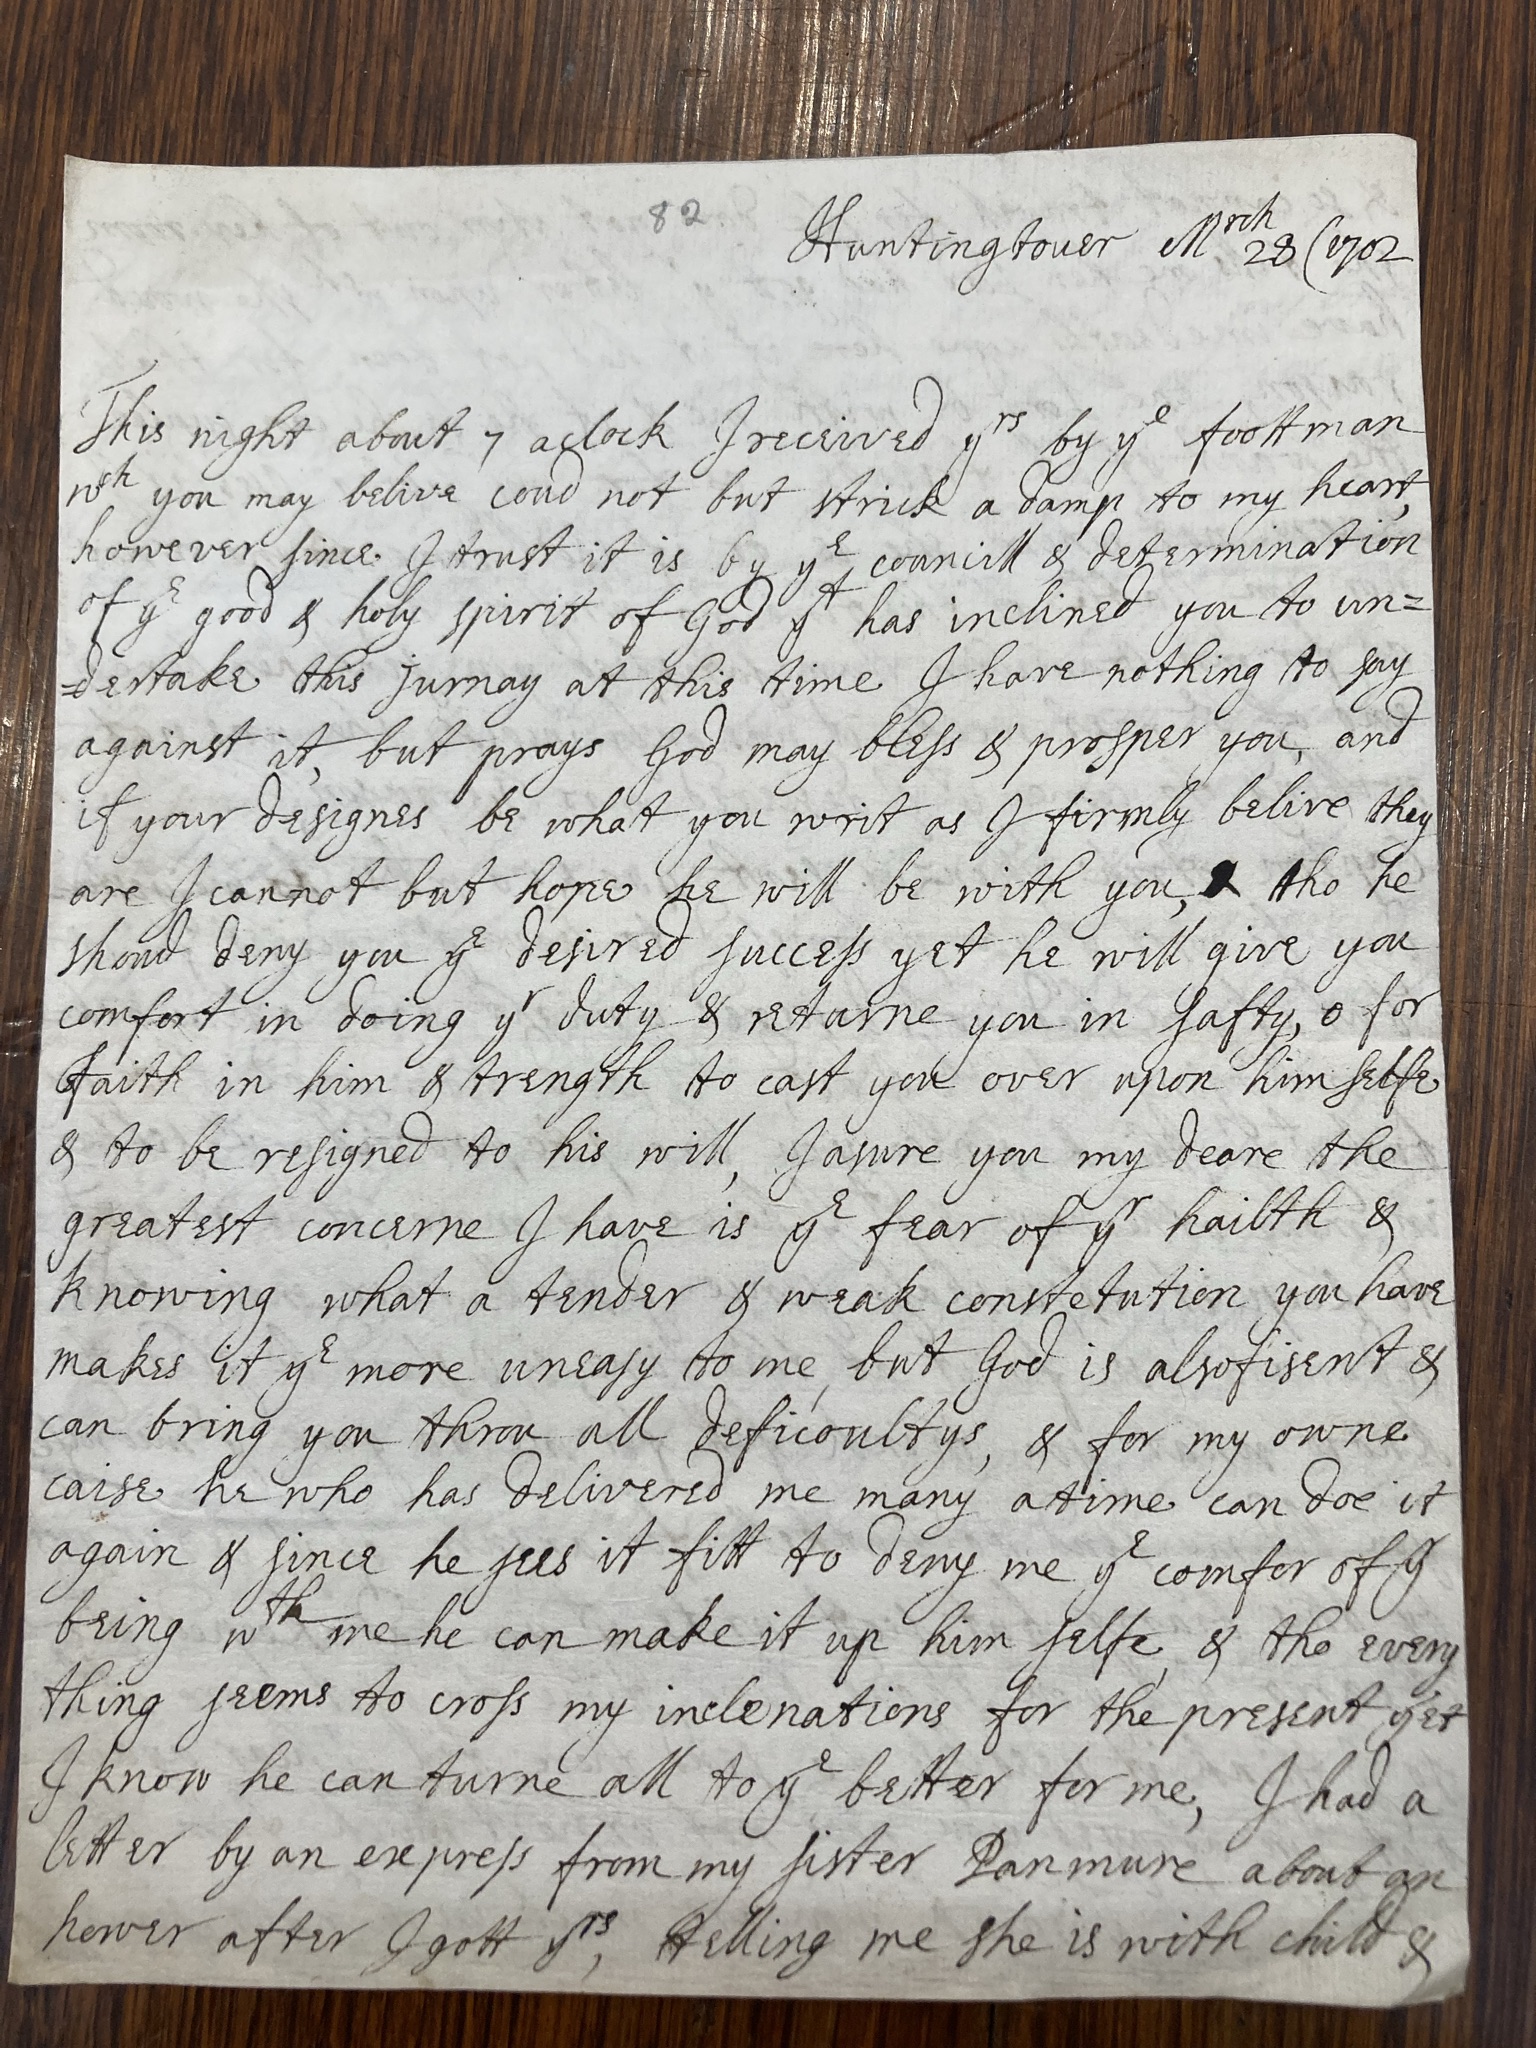 82
Huntingtouer Mrch 28 (1702
This night about 7 aclock I received yrs by ye foottman
wch you may belive coud not but strick a damp to my heart,
however since I trust it is by ye councill & determination
of ye good & holy spirit of God yt has inclined you to un=
=dertake this jurnay at this time I have nothing to say
against it, but prays God may bless & prosper you, and
if your designes be what you writ as I firmly belive they
are I cannot but hope he will be with you, & tho he
shoud deny you ye desired success yet he will give you
comfort in doing yr duty & returne you in safty, o for
faith in him & strength to cast you over upon him selfe
& to be resigned to his will, I asure you my deare the
greatest concerne I have is ye fear of yr hailth &
knowing what a tender & weak constetution you have
makes it ye more uneasy to me, but God is alsofisent &
can bring you throu all deficoultys, & for my owne
caise he who has delivered me many a time can doe it
again & since he sees it fitt to deny me ye comfor of yr
being wth me he can make it up him selfe, & tho every
thing seems to cross my inclenations for the present yet
I know he can turne all to ye better for me, I had a
letter by an express from my sister Panmure about an
hower after I gott yrs, telling me she is with child &